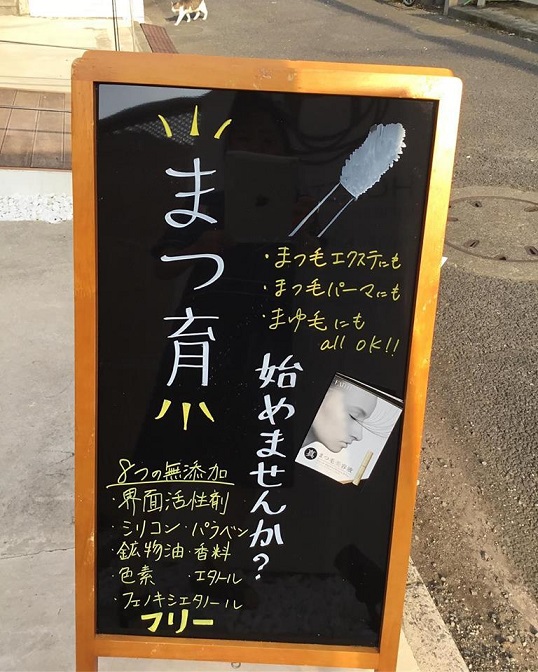 まつ育
・まつ毛エクステにも
・まつ毛パーマにも
・まゆ毛にも
all OK!!
始めませんか?
まつ毛美容液
8つの無添加
・界面活性剤
・シリコン・パラベン
・鉱物油・香料
・色素 ・エタノール
・フェノキシエタノール
フリー